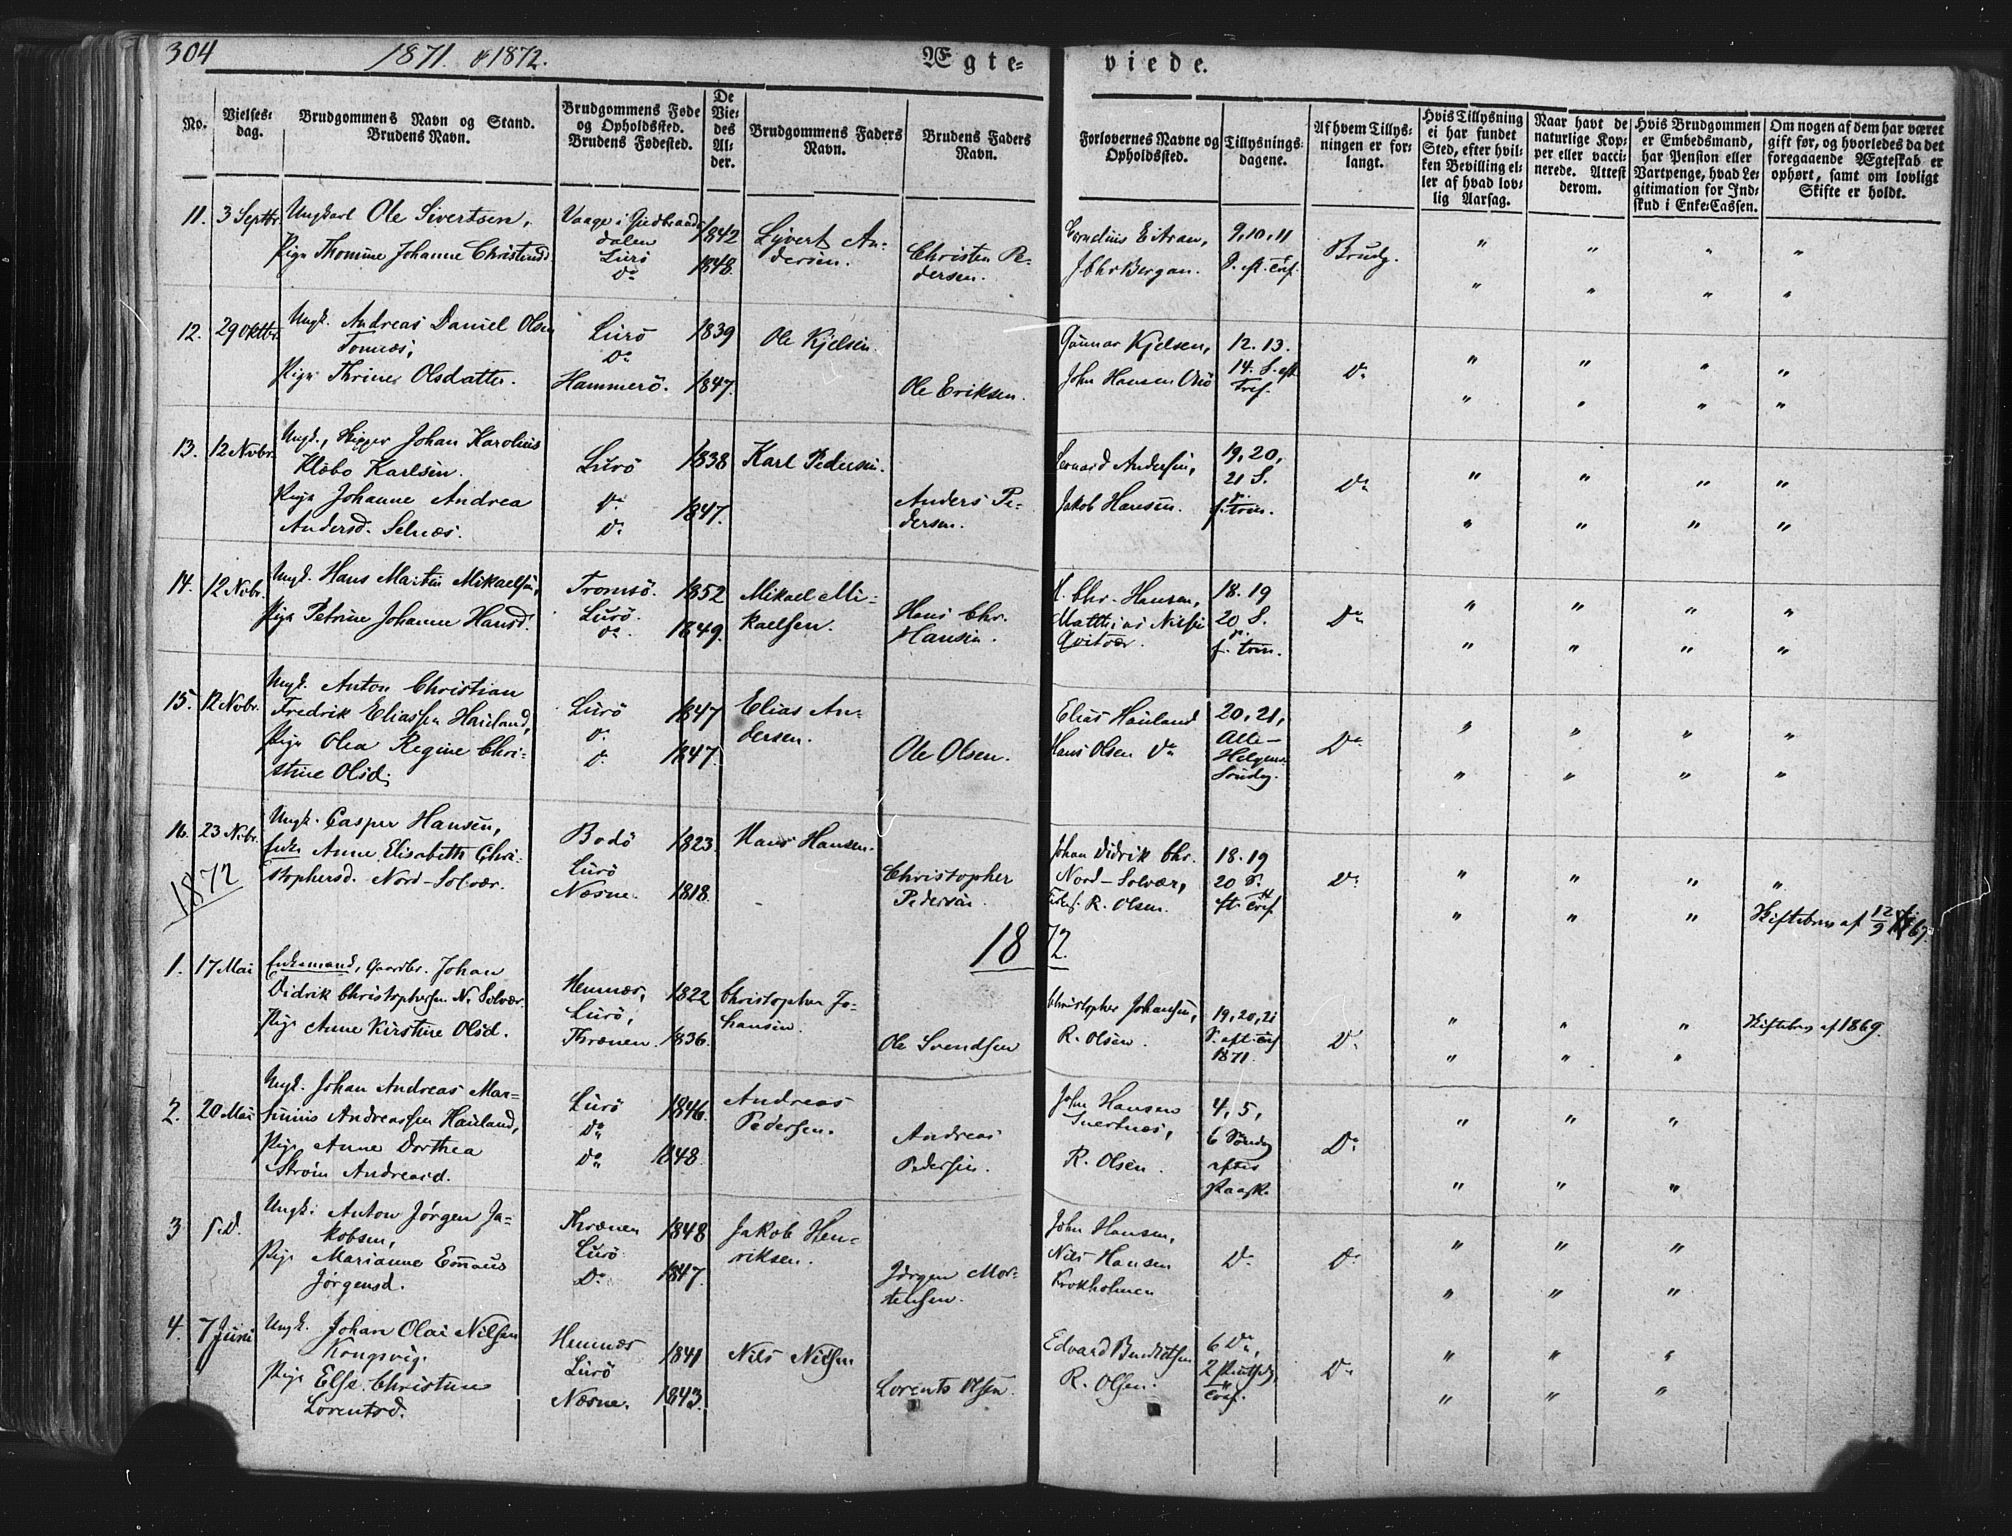 304
1871. & 1872.
Ægte-
viede.
No.
Vielses-
dag.
Brudgommens Navn og Stand.
Brudens Navn.
Brudgommens Føde
og Opholdssted.
Brudens Fødested.
De
Vie-
des
Al-
der.
Brudgommens Faders
Navn.
Brudens Faders
Navn.
Forlovernes Navne og
Opholdssted.
Tillysnings-
dagene.
Af hvem Tillys-
ningen er for-
langt.
Hvis Tillysning
ei har fundet
Sted, efter hvil-
ken Bevilling el-
ler af hvad lov-
lig Aarsag.
Naar havt de
naturlige Kop-
per eller vacci-
nerede. Attest
derom.
Hvis Brudgommen
er Embedsmand,
har Pension eller
Vartpenge, hvad Le-
gitimation for Ind-
skud i Enke-Cassen.
Om nogen af dem har været
gift før, og hvorledes da det
foregaaende Ægteskab er
ophørt, samt om lovligt
Skifte er holdt.
11.
3 Septbr.
Ungkarl Ole Sivertsen,
Pige Thomine Johanne Christensd.
Vaage i Gudbrands
dalen
Lurö
Do
1842
1848.
Syvert An-
dersen.
Christen Pe-
dersen.
Cornelius Eitran,
J Chr Bergan.
9, 10, 11
S. eft. Tref.
Brudg.
12.
29 Oktbr.
Ungk. Andreas Daniel Olsen
Tonnes,
Pige Thrine Olsdatter.
Lurö
Do
Hammerö.
1839
1847.
Ole Kjelsen.
Ole Eriksen.
Gunnar Kjelsen,
John Hansen
12. 13.
14. S. eft
Tref.
Do
13.
12 Novbr.
Ungk., Skipper Johan Karolius
Klæbo Karlsen.
Pige Johanne Andrea
Andersd. Selnæs.
Lurö
Do
Do
1838
1847.
Karl Pedersen.
Anders Pe-
dersen.
Lernard Andersen,
Jakob Hansen.
19, 20,
21 S.
f. Trin.
Do
14.
12 Nvbr.
Ungk. Hans Martin Mikaelsen,
Pige Petrine Johanne Hansd.
Tromsö.
Lurö.
Do
1852
1849.
Mikael Mi-
kaelsen.
Hans Chr.
Hansen.
H. Chr. Hansen,
Matthias Nilsen
Qvitvær.
18. 19
20 S.
f. Trin.
Do
15.
12 Nvbr.
Ungk. Anton Christian
Fredrik Eliassen Hauland,
Pige Olea Regine Chri-
stine Olsd.
Lurö
Do
Do
1847
1847.
Elias An-
dersen.
Ole Olsen.
Elias Hauland
Hans Olsen Do
20, 21,
Alle-
Helgens
Søndag.
Do
16.
23 Nvbr.
Ungk. Casper Hansen,
Enke Anne Elisabeth Chri-
stophersd. Nord-Solvær.
Bodö
Lurö
Næsne.
1823.
1818.
Hans Hansen.
Christopher
Pedersen.
Johan Didrik Chr.
Nord-Solvær,
R. Olsen.
18. 19
20 S.
eft. Tref.
Do
Skiftebrev af 12/9 67.
1872
1872.
1.
17 Mai
Enkemand, Gaardbr. Johan
Didrik Christophersen N. Solvær.
Pige Anne Kirstine Olsd.
Hemnæs,
Lurö,
Thrænen.
1822
1836.
Christopher Jo-
hansen.
Ole Svendsen
Christopher Johansen,
R. Olsen.
19, 20, 21
S. eft. Tref
1871.
Do
Skiftebrev af 1869.
2.
20 Mai
Ungk. Johan Andreas Mar-
sinius Andreassen Hauland,
Pige Anne Dorthea
Strøm Andreasd.
Lurö
Do
Do
1846.
1848.
Andreas
Pedersen.
Andreas
Pedersen.
John Hansen
R. Olsen.
4, 5,
6 Søndag
efter
Paask.
Do
3
S.D.
Ungk. Anton Jørgen Ja-
kobsen,
Pige Marianne Emaus
Jørgensd.
Thrænen
Lurö
Do
1848
1847.
Jakob Hen-
riksen.
Jørgen Mor-
tensen.
John Hansen,
Nils Hansen
Krokholmen
Do
Do
4.
7 Juni
Ungk. Johan Olai Nilsen
Kongsvig.
Pige Else Christine
Lorentsd.
Hemnæs
Lurö
Næsne.
1841
1843.
Nils Nilsen
Lorents Olsen.
Edvard Benediktsen
R. Olsen.
6 Do,
Tref.
Do